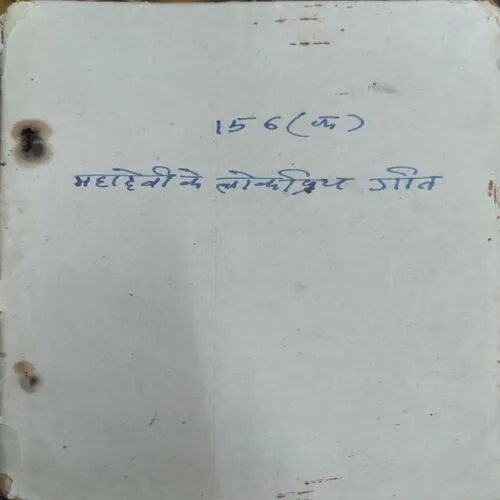 156 (क)
महादेवी के लोकप्रिय गीत